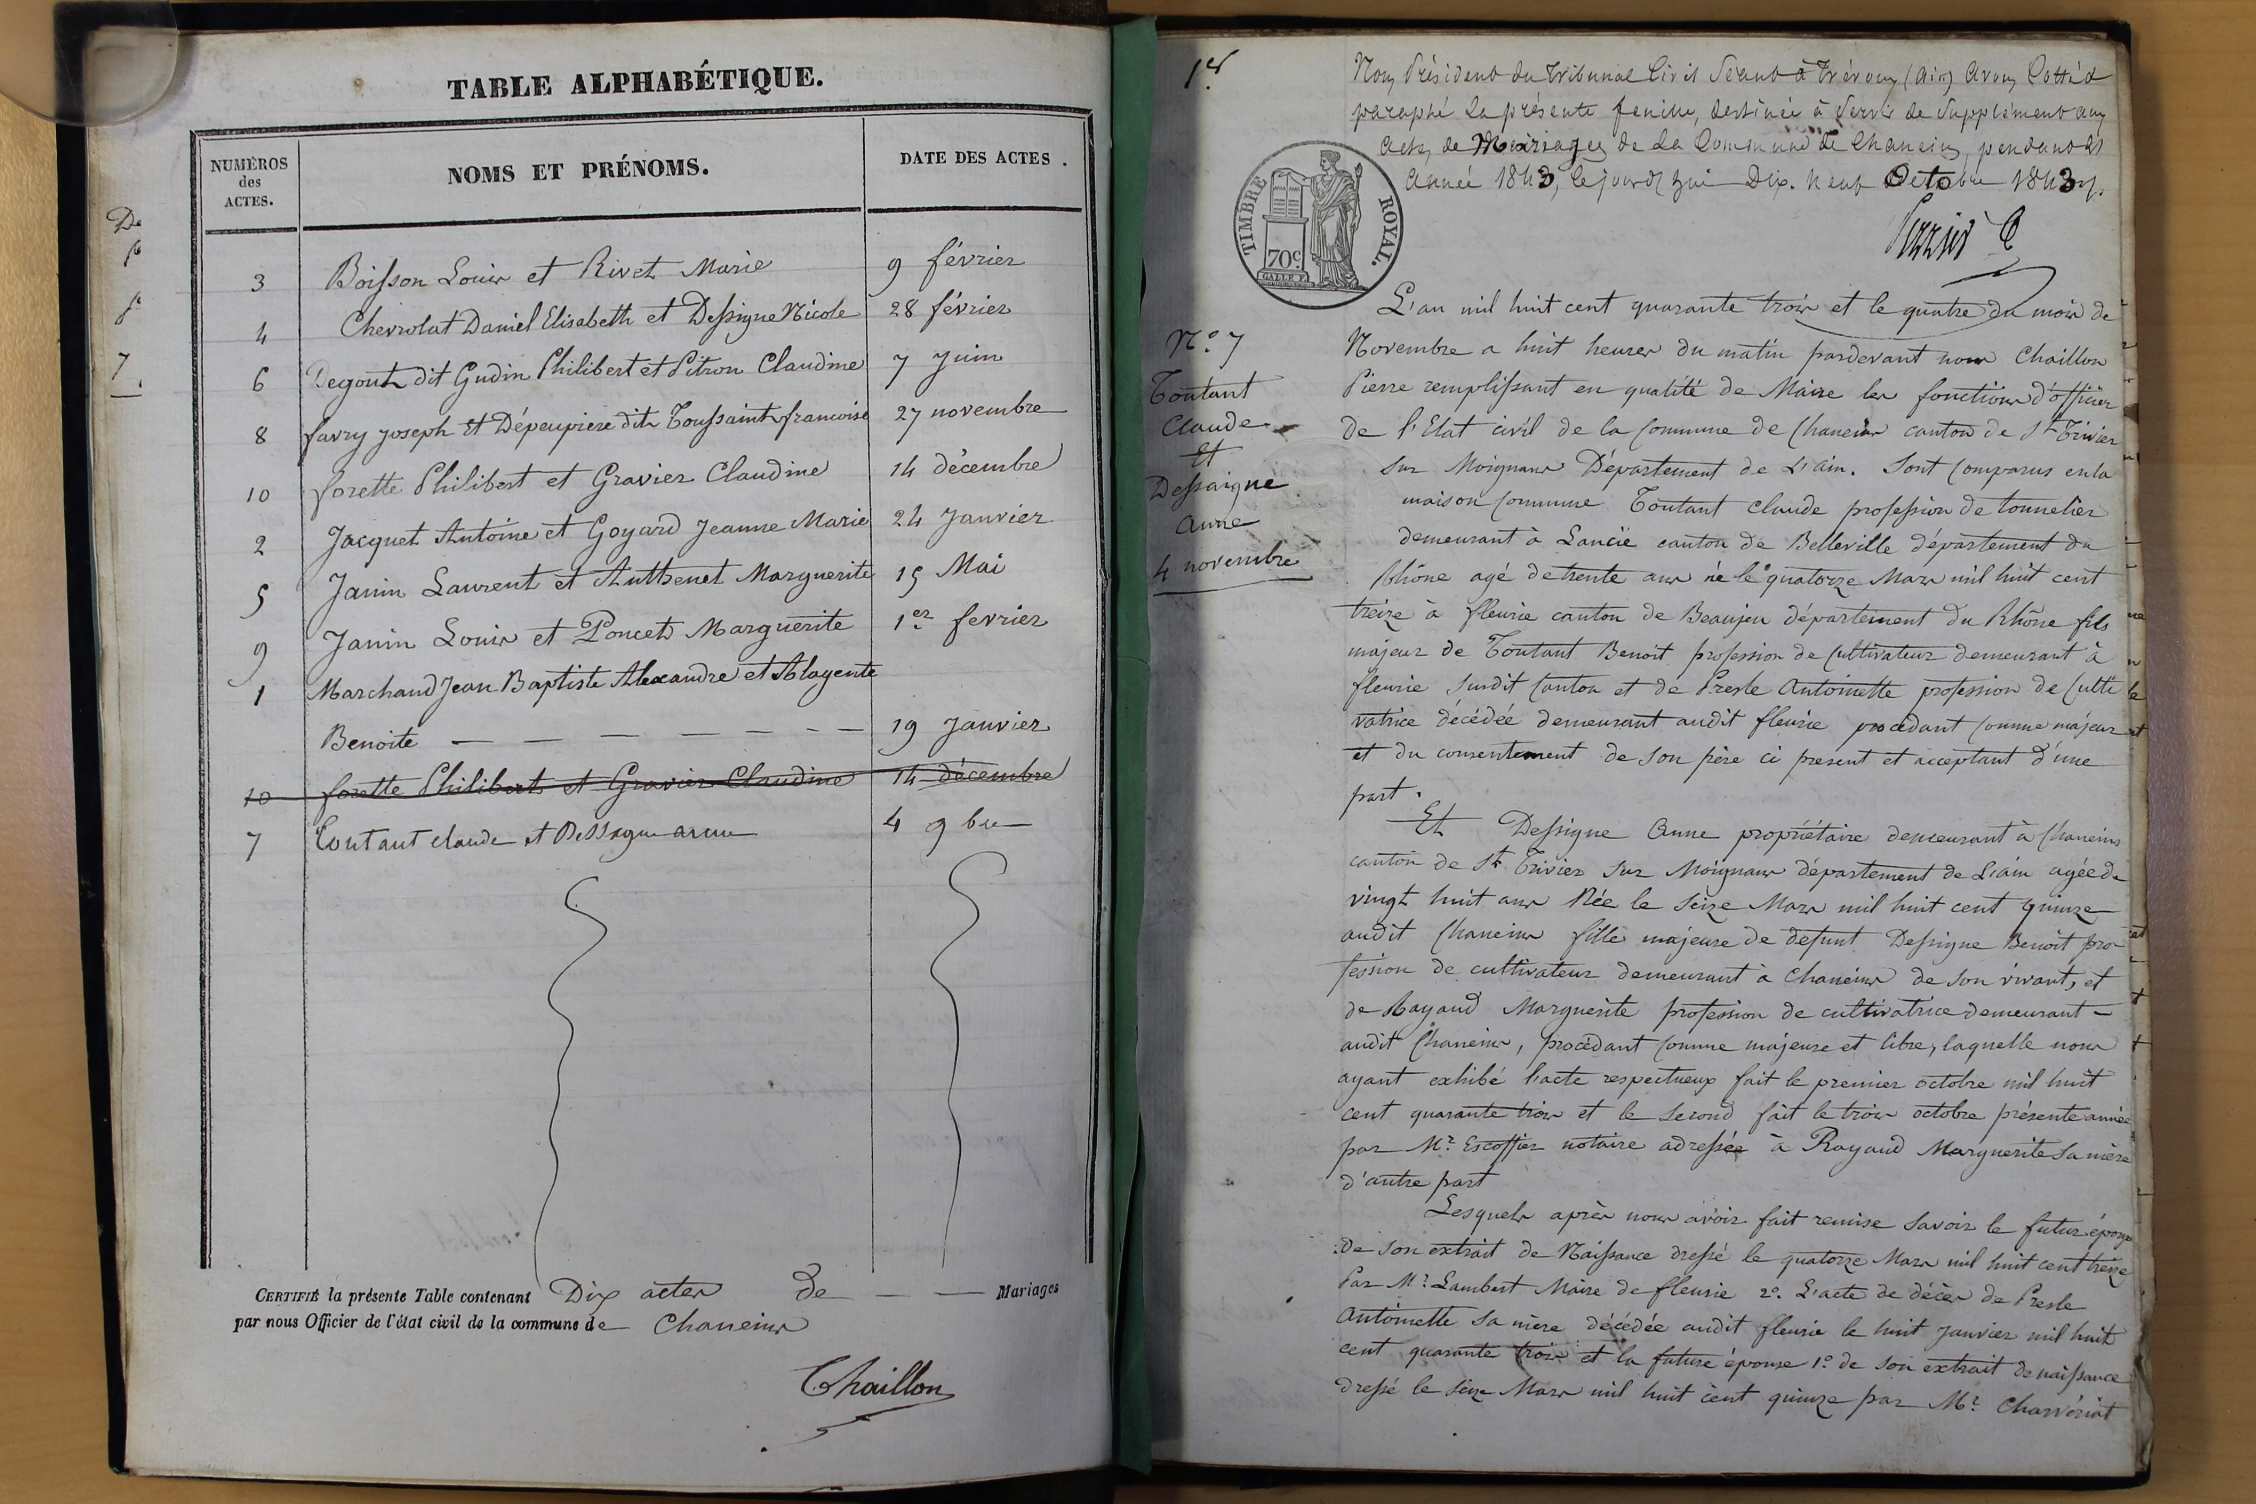 TABLE ALPHABÉTIQUE.
NUMÉROS des ACTES.
NOMS ET PRÉNOMS.
DATE DES ACTES.
3 Boisson Louis et Rivet Marie 9 février
4 Chevrolat Daniel Elisabeth et Dessigne Nicole 28 février
6 Degout dit Gudin Philibert et Pitron Claudine 7 Juin
8 favry joseph et Dépeupiere dit Toussaint francoise 27 novembre
10 forette Philibert et Gravier Claudine 14 décembre
2 Jacquet Antoine et Goyard Jeanne Marie 24 Janvier
5 Janin Laurent et Authenet Marguerite 15 Mai
9 Janin Louis et Poncet Marguerite 1er fevrier
1 Marchand Jean Baptiste Alexandre et Alagente
Benoite 19 Janvier
10 forette Philibert et Gravier Claudine 14 décembre
7 Toutant claude et Dessigne anne 4 9bre
CERTIFIÉ la présente Table contenant Dix actes de Mariages
par nous Officier de l'état civil de la commune de Chaneins
Chaillon
De
7
1er
Nous Président du Tribunal Civil Séant à Trévoux (Ain) avons Cotté &
paraphé la présente feuille, destinée à Servir de Supplément aux
actes de Mariages de la Commune de Chaneins, pendant l'
année 1843, ce jourd'hui Dix-neuf Octobre 1843
TIMBRE ROYAL.
70c.
N° 7
Toutant
Claude
Et
Dessaigne
Anne
4 novembre
L'an mil huit cent quarante trois et le quatre du mois de
Novembre a huit heures du matin pardevant nous Chaillon
Pierre remplissant en qualité de Maire les fonctions d'officier
de l'Etat civil de la Commune de Chaneins canton de St Trivier
sur Moignans Département de L'ain. Sont Comparus en la
maison Commune Toutant claude profession de tonnelier
demeurant à Lancïe canton de Belleville département du
Rhône agé de trente ans né le quatorze Mars mil huit cent
treize à fleurie canton de Beaujeu département du Rhône fils
majeur de Toutant Benoit profession de Cultivateur demeurant à
fleurie susdit Canton et de Presle Antoinette profession de Culti
vatrice décédée demeurant audit fleurie procédant Comme majeur
et du consentement de son père ci present et acceptant d'une
part.
Et Dessigne Anne propriétaire demeurant à Chaneins
canton de St Trivier sur Moignans département de L'ain agée de
vingt huit ans Née le seize Mars mil huit cent quinze
audit Chaneins fille majeure de defunt Dessigne Benoit pro
fession de cultivateur demeurant à Chaneins de son vivant, et
de Rayaud Marguerite profession de cultivatrice demeurant
audit Chaneins, procédant Comme majeure et libre, laquelle nous
ayant exhibé l'acte respectueux fait le premier octobre mil huit
cent quarante trois et le second fait le trois octobre présente année
par Mr. Escoffier notaire adressée à Rayaud Marguerite sa mère
d'autre part
Lesquels après nous avoir fait remise savoir le futur époux
de son extrait de Naissance dressé le quatorze Mars mil huit cent treize
Par Mr. Lambert Maire de fleurie 2°. L'acte de décès de Presle
Antoinette sa mère décédée audit fleurie le huit Janvier mil huit
cent quarante trois et la future épouse 1° de son extrait de naissance
dressé le seize Mars mil huit cent quinze par Mr. Charvériat